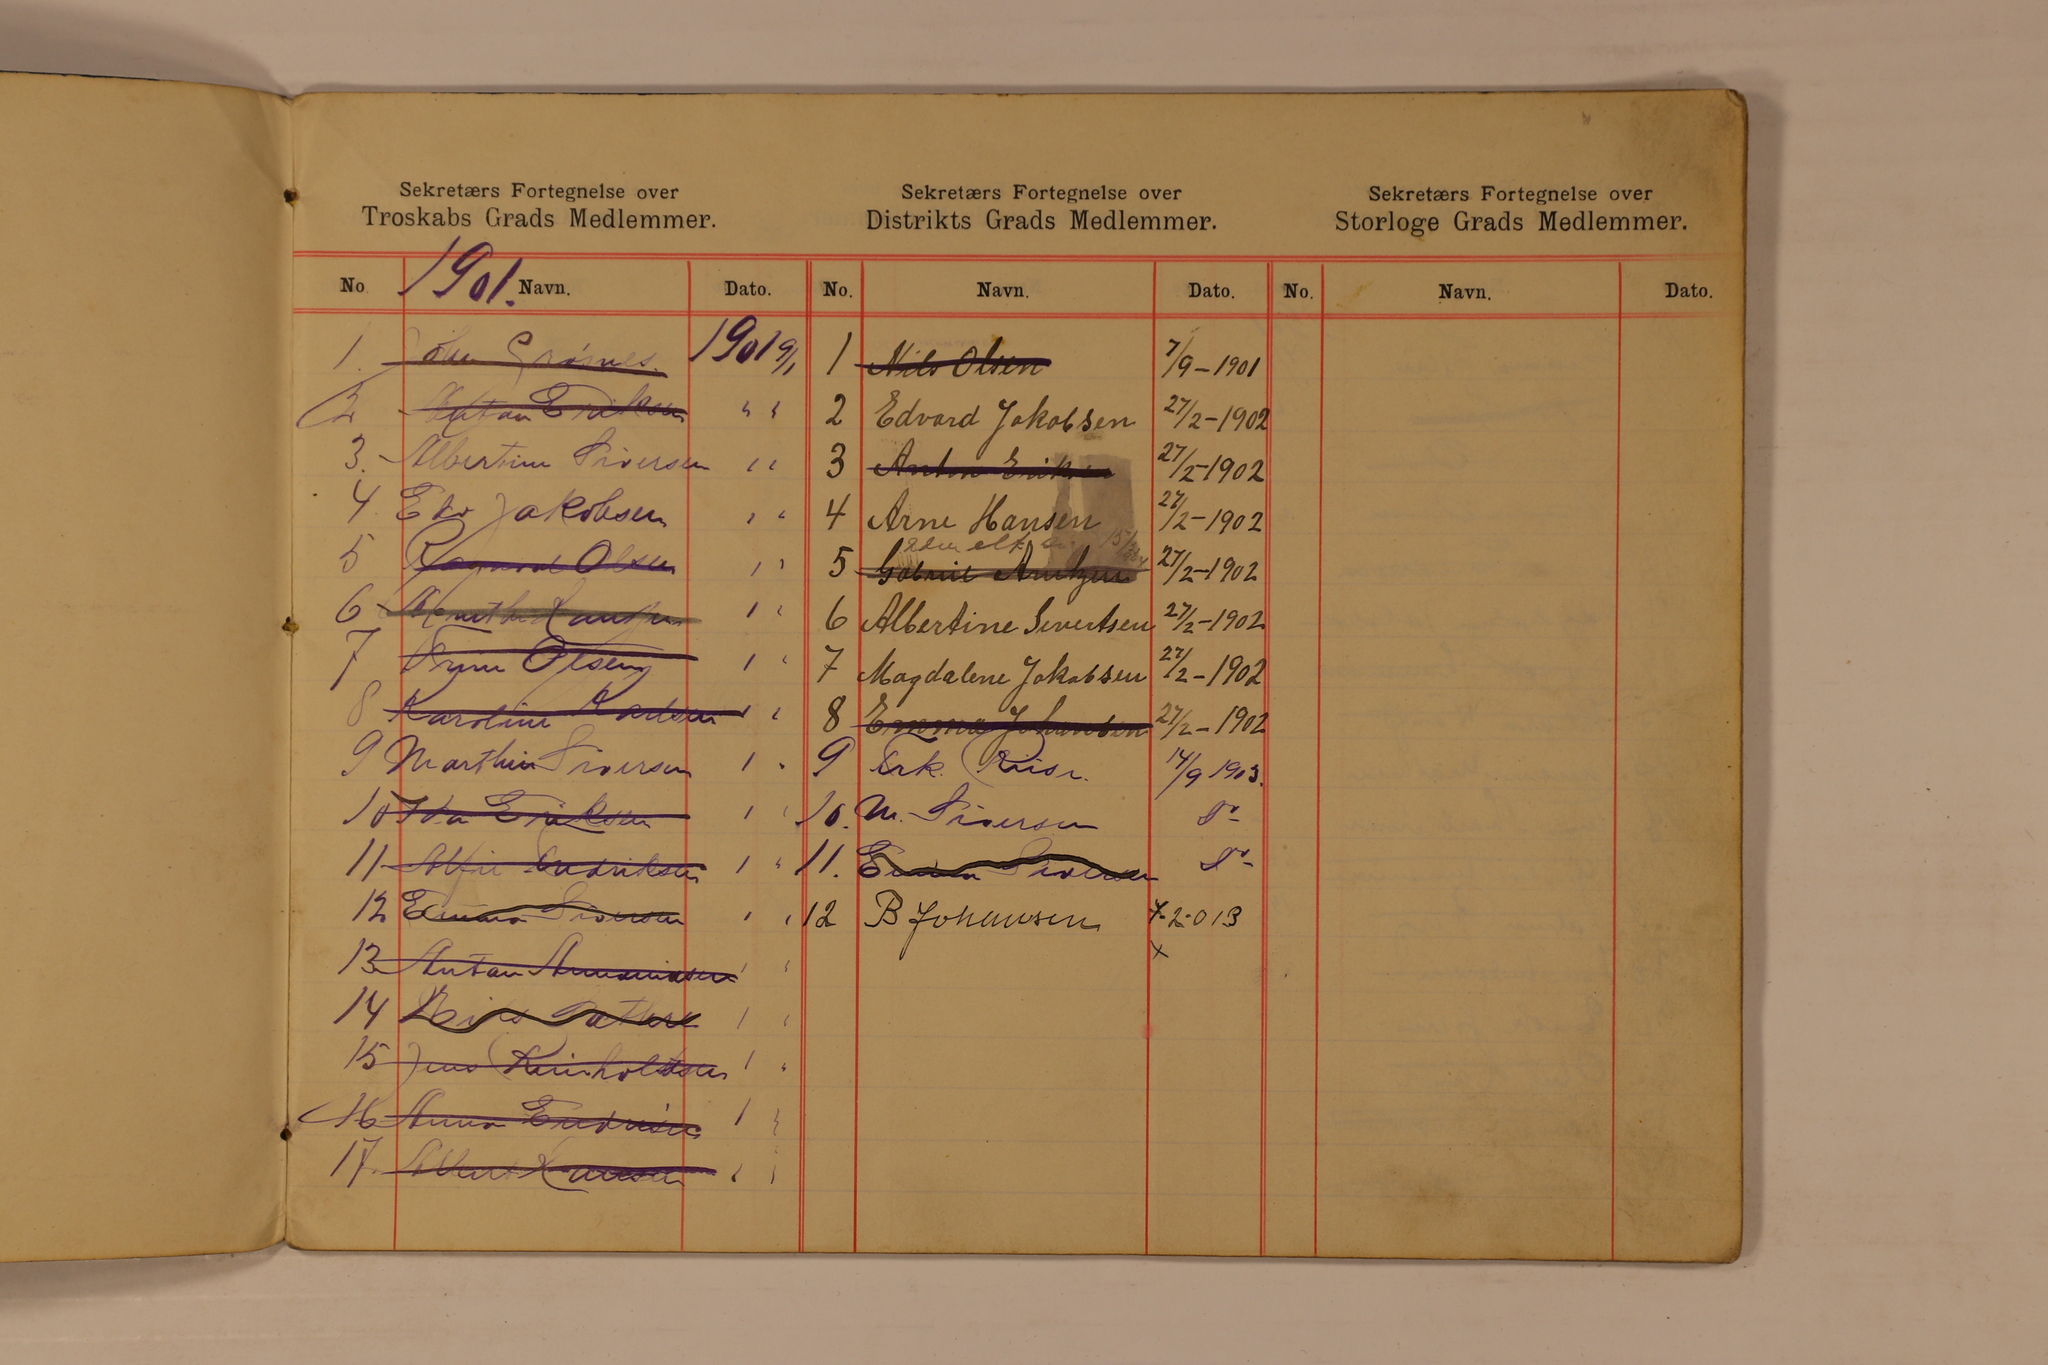 Sekretærs Fortegnelse over
Troskabs Grads Medlemmer.
No Navn. Dato.
1901.
1. Grönnes. 1901 9/1
2 Anton Eriksen " "
3. Albertine Siversen " "
4 Edv Jakobsen " "
5 Ragnvald Olsen " "
6 Hansen " "
7 Trine Olsen " "
8 Karoline Karlsen " "
9 Marthin Siversen " "
10 Ida Eriksen " "
11 Endriksen " "
12 Emma Siversen " "
13 Anton " "
14 Nils " "
15 Jens Reinholdtsen " "
16 Anna " "
17. Albert Hansen " "
Sekretærs Fortegnelse over
Distrikts Grads Medlemmer.
No. Navn. Dato.
1 Nils Olsen 7/9-1901
2 Edvard Jakobsen 27/2-1902
3 Anton Eriksen 27/2-1902
4 Arne Hansen 27/2-1902
5 Gabriel Arntzen 27/2-1902
6 Albertine Sivertsen 27/2-1902
7 Magdalene Jakobsen 27/2-1902
8 Emma Johansen 27/2-1902
9 Frk. 14/9 1903.
10. M. Siversen Do-
11. Emma Siversen Do-
12 B Johansen 7-2-013
x
Sekretærs Fortegnelse over
Storloge Grads Medlemmer.
No. Navn. Dato.